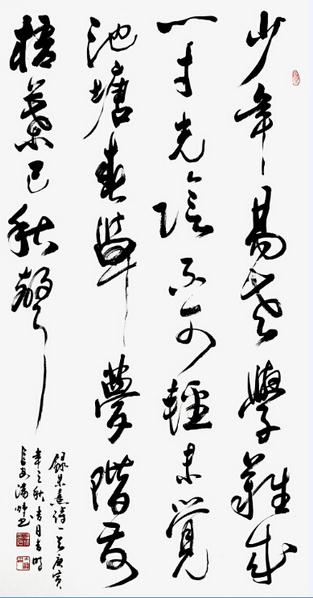 少年易老學難成
一寸光陰不可輕未覺
池塘春草夢階前
梧葉已秋聲
錄朱熹詩一首庚寅
年之秋吉日書